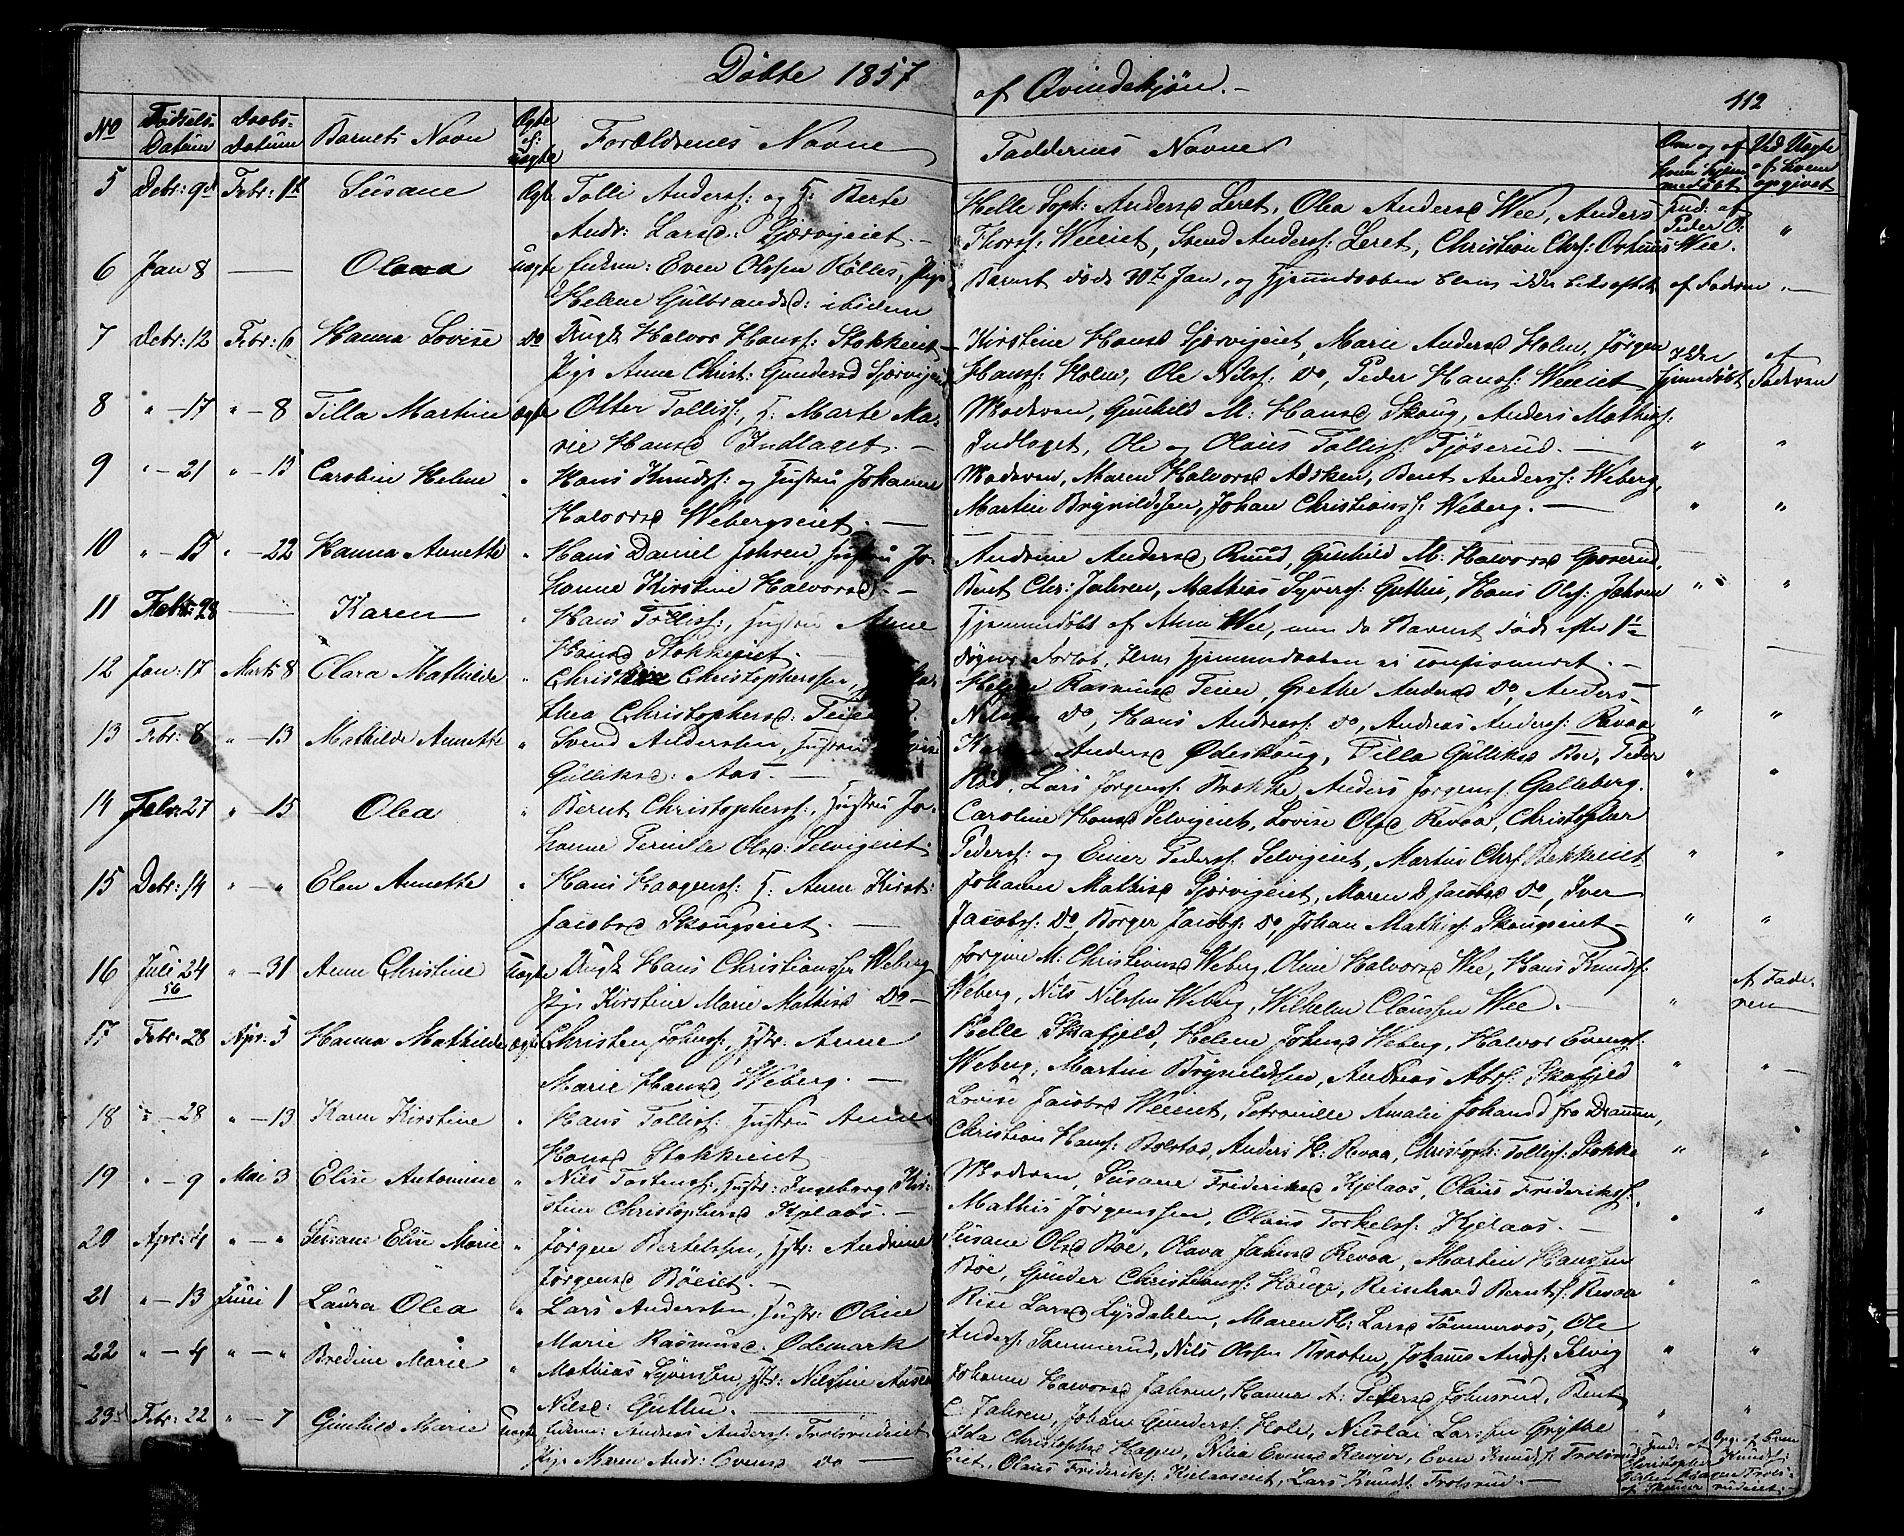 Döbte 1857
af Qvindekjön.
112
No
Födsels-Datum
Daabs-Datum
Barnets Navn
Ægte el: uægte
Forældrenes Navne
Faddernes Navne
Ved Uægte af hvem opgivet
5 Debr: 9d Febr: 1t Susane Ægte Tolli Anderss: og H: Berte
Andr: Larsd: Gjærvigeiet.
Helle Soph: Andersd Leret, Olea Andersd Wee, Anders
Thorss: Weeeiet, Svend Anderss: Leret, Christian Chrs: Wee.
6 Jan 8 — Olava uægte Even Olssen Kölles, Pige
Helene Gulbrandsd: ibidem
Barnet döde 30te Jan, og Hjemmedaaben blev ikke bekræftet af Faderen
7 Debr: 12 Febr: 6 Hanna Lovise Do Ungk Halvor Hanss: Stokkeiet
Pige Anne Christ: Gundersd Gjærvigeiet
Kirstine Hansd Gjærvigeiet, Marie Andersd Holm, Jörgen
Hanss: Holm, Ole Nilss: Do, Peder Hanss: Weeeiet
Ikke hjemmedöbt
af Faderen
8 " - 17 " - 8 Tilla Martine Ægte Otter Tolliss:, H: Marte Ma-
rie Hansd Indlaget.
Moderen, Gunhild M: Hansd Skoug, Anders Mathiss:
Indlaget, Ole og Olaus Tolliss: Fjöserud.
9 " - 21 " - 15 Carolin Helene " Hans Knuds: og Hustru Johanne
Halvorsd Webergseiet.
Moderen, Maren Halvorsd Adsken, Bent Anderss: Weberg,
Martin Brynildssen, Johan Christianss: Weberg.
10 " - 15 " - 22 Hanna Annette " Hans Daniel Jahren, Hustru Jo-
hanne Kirstine Halvorsd.
Andrine Andersd Ruud, Gunhild M: Halvorsd Goserud,
Bent Chr: Jahren, Mathias Syverss: Guthu, Hans Ols: Jahren
11 Febr: 28 — Karen " Hans Tolliss:, Hustru Anne
Hansd Stokkeiet.
Hjemmedöbt af Anne Wee, men da Barnet döde efter 1
Forlöb, blev Hjemmedaaben ei confirmeret.
12 Jan: 17 Marts 8 Clara Mathilde " Christian Christopherssen,
thea Christophersd: Teien.
Helene Rasmusd Teien, Grethe Andersd Do, Anders
Nilssen Do, Hans Andreass: Do, Andreas Anderss: Revaa
13 Febr: 8 " - 13 Mathilde Annette " Svend Anderssen, Hustru
Gulliksd: Aas.
Andersd Ödeskoug, Tilla Gulliksd Boe, Peder
Lars Jörgenss: Brekke, Anders Jörgenss: Galleberg.
14 Febr: 27 " - 15 Olea " Bernt Christopherss:, Hustru Jo-
hanne Pernille Olsd: Selvigeiet.
Caroline Hansd Selvigeiet, Lovise Olsd Revaa, Christopher
Pederss: og Einer Pederss: Selvigeiet, Martin Chrs Bakkeeiet
15 Debr: 14 " - " Elen Annette " Hans Haagenss: H: Anne Kirst:
Jacobsd Skougseiet.
Johanne Mathisd Gjærvigeiet, Maren D Jacobsd Do, Iver
Jacobss: Do Börger Jacobss: Do, Johan Mathiss: Skougseiet
16 Juli 24 56 " - 31 Anne Christine Uægte Ungk Hans Christianssen Weberg
Pige Kirstine Marie Mathisd Do
Jörgine M: Christiansd Weberg, Oline Halvorsd Wee, Hans Knuds:
Weberg, Nils Nilssen Weberg, Wilhelm Claussen Wee.
Af Fade-
ren
17 Febr: 28 Apr: 5 Hanna Mathilde Ægte Christen Johnss:, Hstr: Anne
Marie Hansd Weberg.
Helle Skafjeld, Helene Johnsd Weberg, Halvor Evenss:
Weberg, Martin Brynildssen, Andreas Abrs: Skafjeld
18 " - 28 " - 13 Karen Kirstine " Hans Tolliss: Hustru Anne
Hansd Stokkeiet
Lovise Jacobsd Weeeiet, Petronille Amalie Johansd fra Drammen,
Christian Hanss: Bolstad, Anders H: Revaa, Christoph: Tolliss: Stokke
19 " - 9 Mai 3 Elise Antomine " Nils Tostenss:, Hustr: Ingeborg Kir-
stine Christophersd Kjelaas.
Moderen, Susane Frideriksd Kjelaas, Olaus Frideriks:
Mathis Jörgenssen, Olaus Torkels: Kjelaas.
20 Apr: 4 " - " Susane Elise Marie " Jörgen Bertelssen, Hstr: Andrine
Jörgensd Böeiet.
Susane Olsd Böe, Olava Jahnsd Revaa, Martin Hanssen
Böe, Gunder Christianss: Hauge, Reinhard Bernts: Revaa
21 " - 13 Juni 1 Laura Olea " Lars Anderssen, Hustr: Oline
Marie Rasmusd: Ödemark
Rise Larsd Lysdahlen, Maren H: Larsd Tömmeraas, Ole
Anders: Sommerud, Nils Olssen Braaten, Johannes Ands: Selvig
22 " - 4 " - " Bredine Marie " Mathias Syverssen, Hstr: Nilsine
Nilsd: Guthu.
Johanne Halvorsd Jahren, Hanna A: Pedersd Johnsrud, Bent
C: Jahren, Johan Gunders: Hole, Nicolai Larssen Grytte
23 Febr: 22 " - 7 Gunhild Marie Uægte Andreas Anders: Trolsrudeiet
Pige Maren Andr: Evensd Do
Ida Christophd Hagen, Nilia Evensd Revjor, Even Knuds: Trolsrud
Eiet, Olaus Frideriks: Kjelaaseiet, Lars Knuds: Trolsrud.